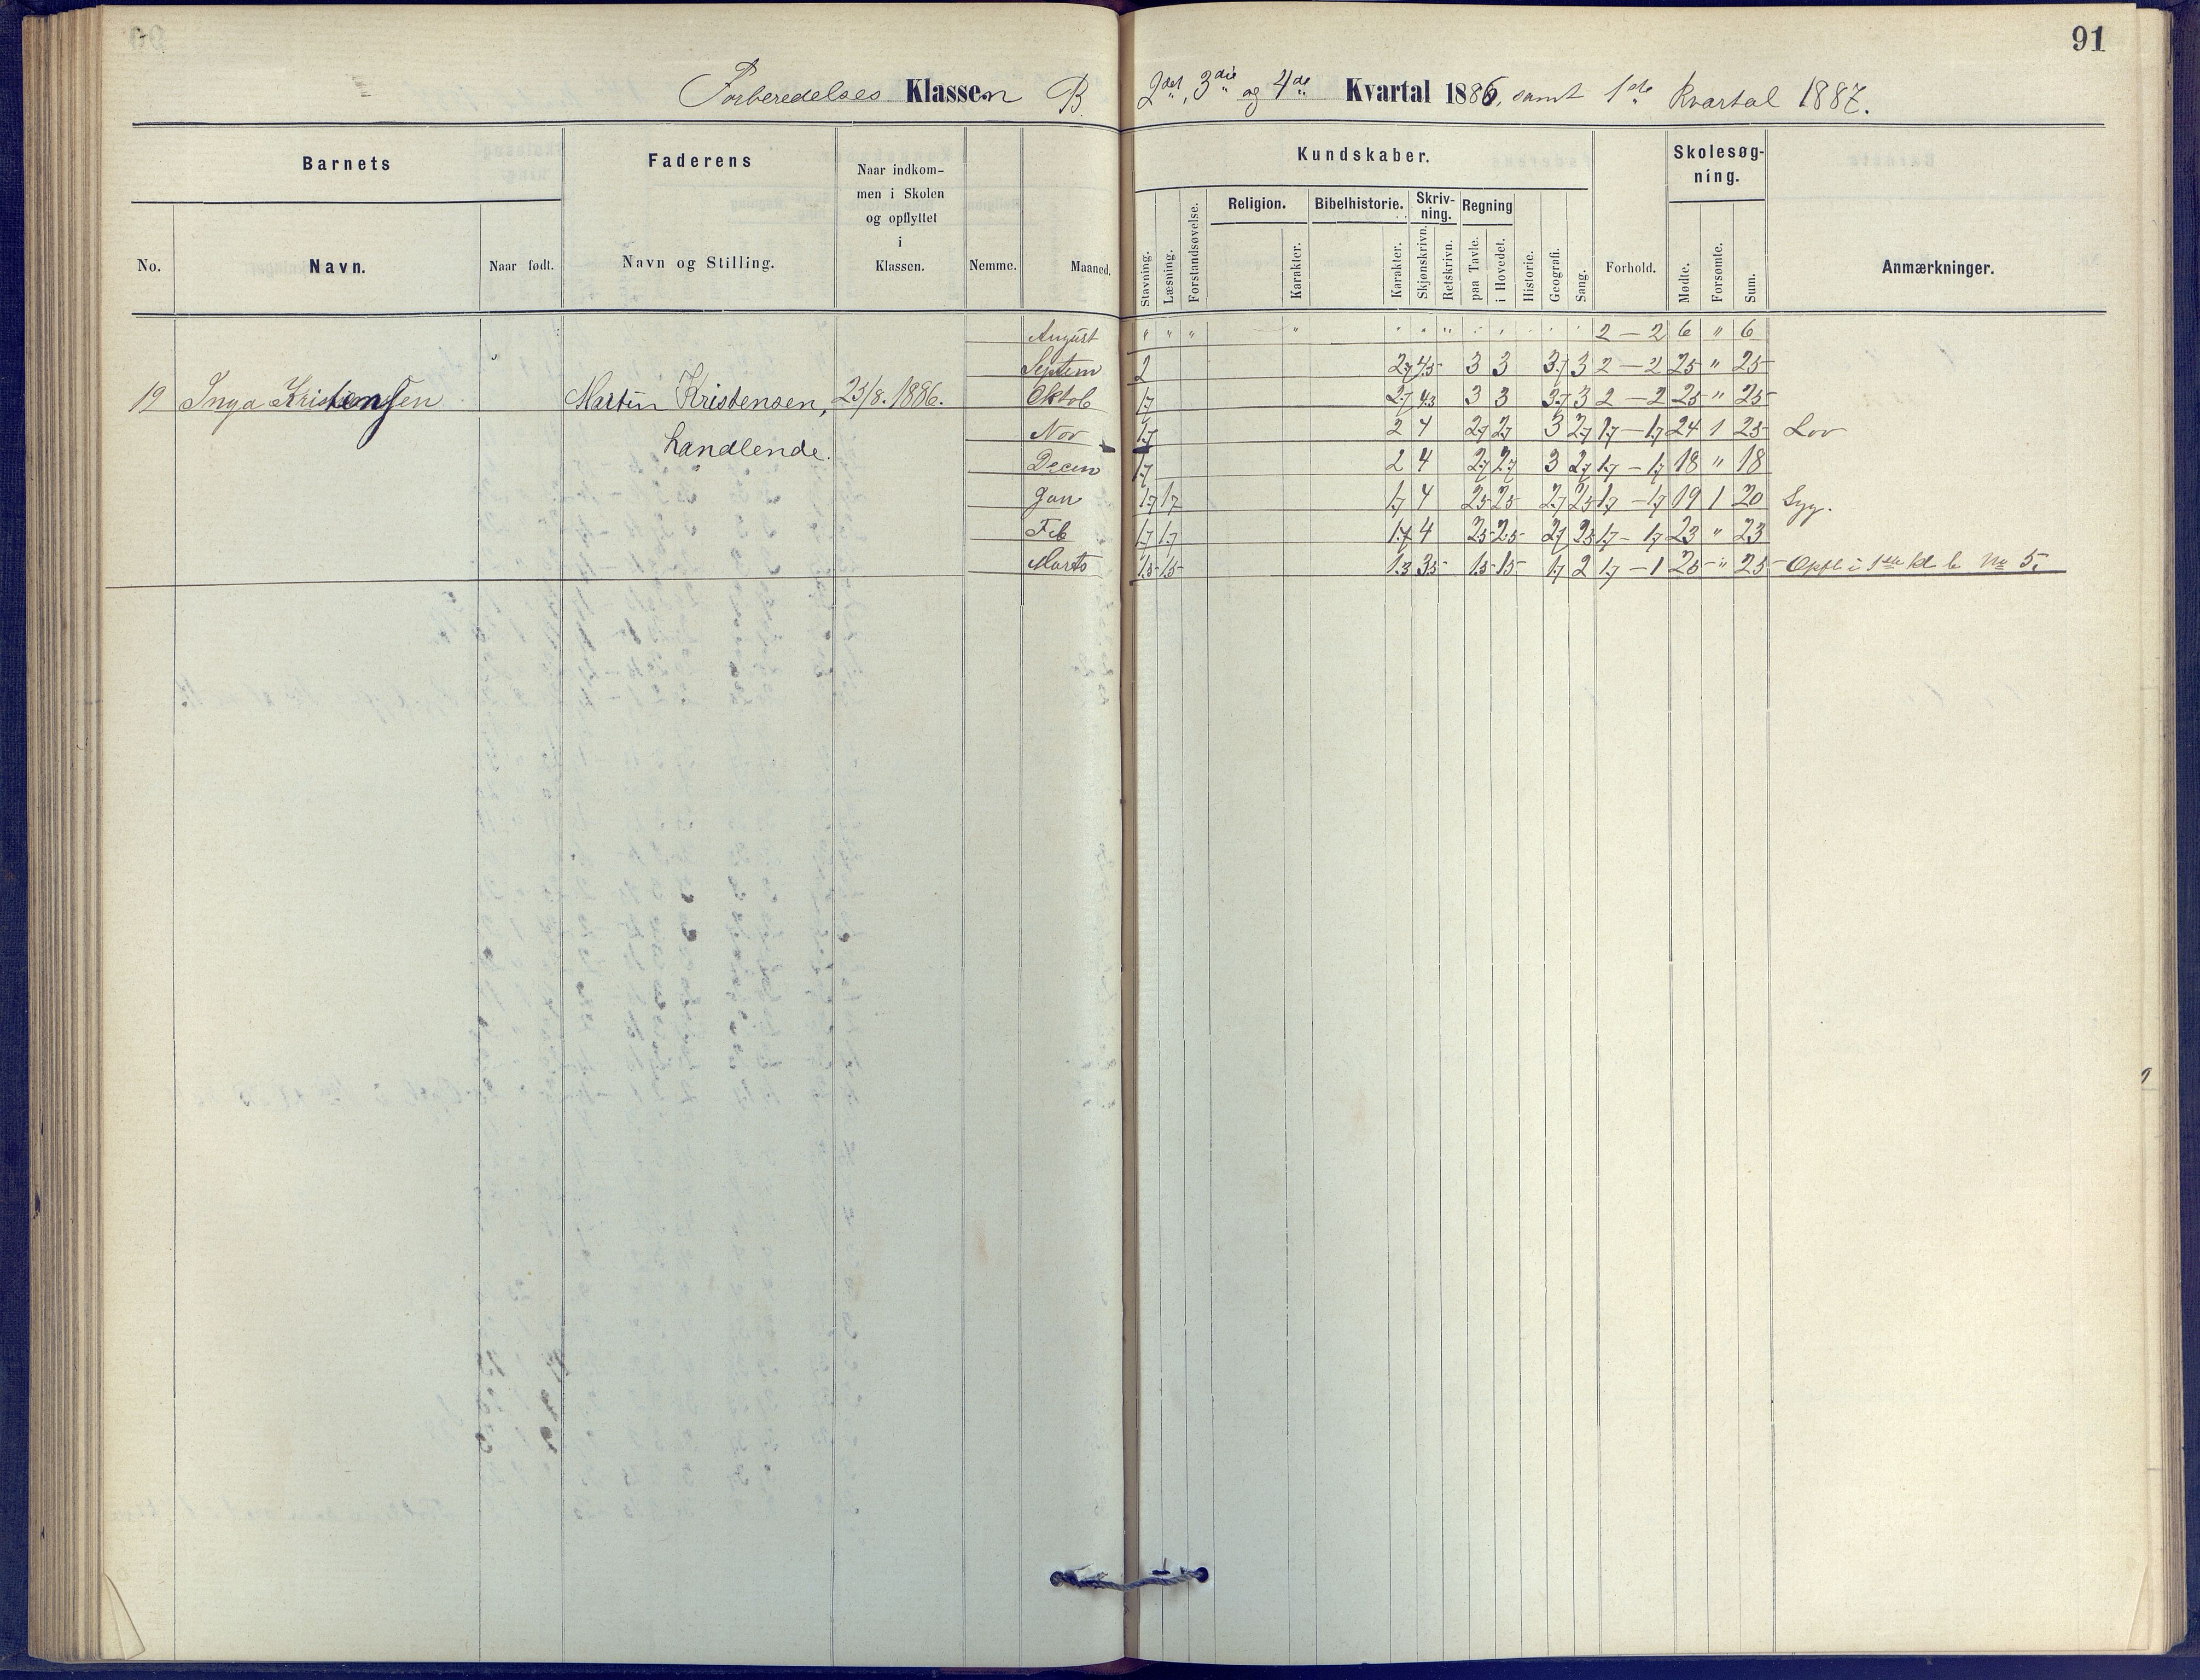 91
Forberedelses Klassen B. 2det, 3die og 4de Kvartal 1886, samt 1ste Kvartal 1887.
Barnets Faderens Naar indkom-
men i Skolen
og opflyttet
i
Klassen.
No. Navn. Naar født. Navn og Stilling. Nemme. Maaned.
Kundskaber. Skolesøg-
ning.
Religion. Bibelhistorie. Skriv-
ning. Regning
Stavning. Læsning. Forstandsøvelse. Karakter. Karakter. Skjønskrivn. Retskrivn. paa Tavle. i Hovedet. Historie. Geografi. Sang. Forhold. Mødte. Forsømte. Sum. Anmærkninger.
August " " " " " " " 2 — 2 6 " 6
Septem 2 2.7 4.5 3 3 3.7 3 2 — 2 25 " 25
19 Inga Kristensen Martin Kristensen, 23/8. 1886. Oktob 1.7 2.7 4.3 3 3 3.7 3 2 — 2 25 " 25
handlende. Nov 1.7 2 4 2.7 2.7 3 2.7 1.7 — 1.7 24 1 25 Lov
Decem 1.7 2 4 2.7 2.7 3 2.7 1.7 — 1.7 18 " 18
Jan 1.7 1.7 1.7 4 2.5 2.5 2.7 2.5 1.7 — 1.7 19 1 20 Syg.
Feb 1.7 1.7 1.7 4 2.5 2.5 2.7 2.5 1.7 — 1.7 23 " 23
Marts 1.5 1.5 1.3 3.5 1.5 1.5 1.7 2 1.7 — 1 25 " 25 Opfl. i 1ste kl. b No 5.